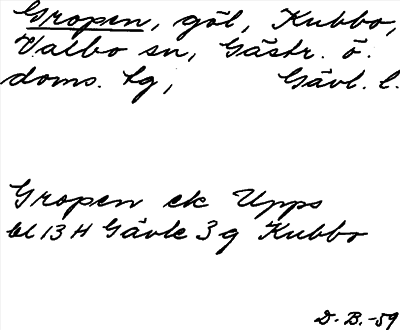 Gropen, göl, Kubbo,
Valbo sn, Gästr. ö.
doms. tg, Gävl. l.
Gropen ek Upps
bl 13 H Gävle 3 g Kubbo
D. B. -59